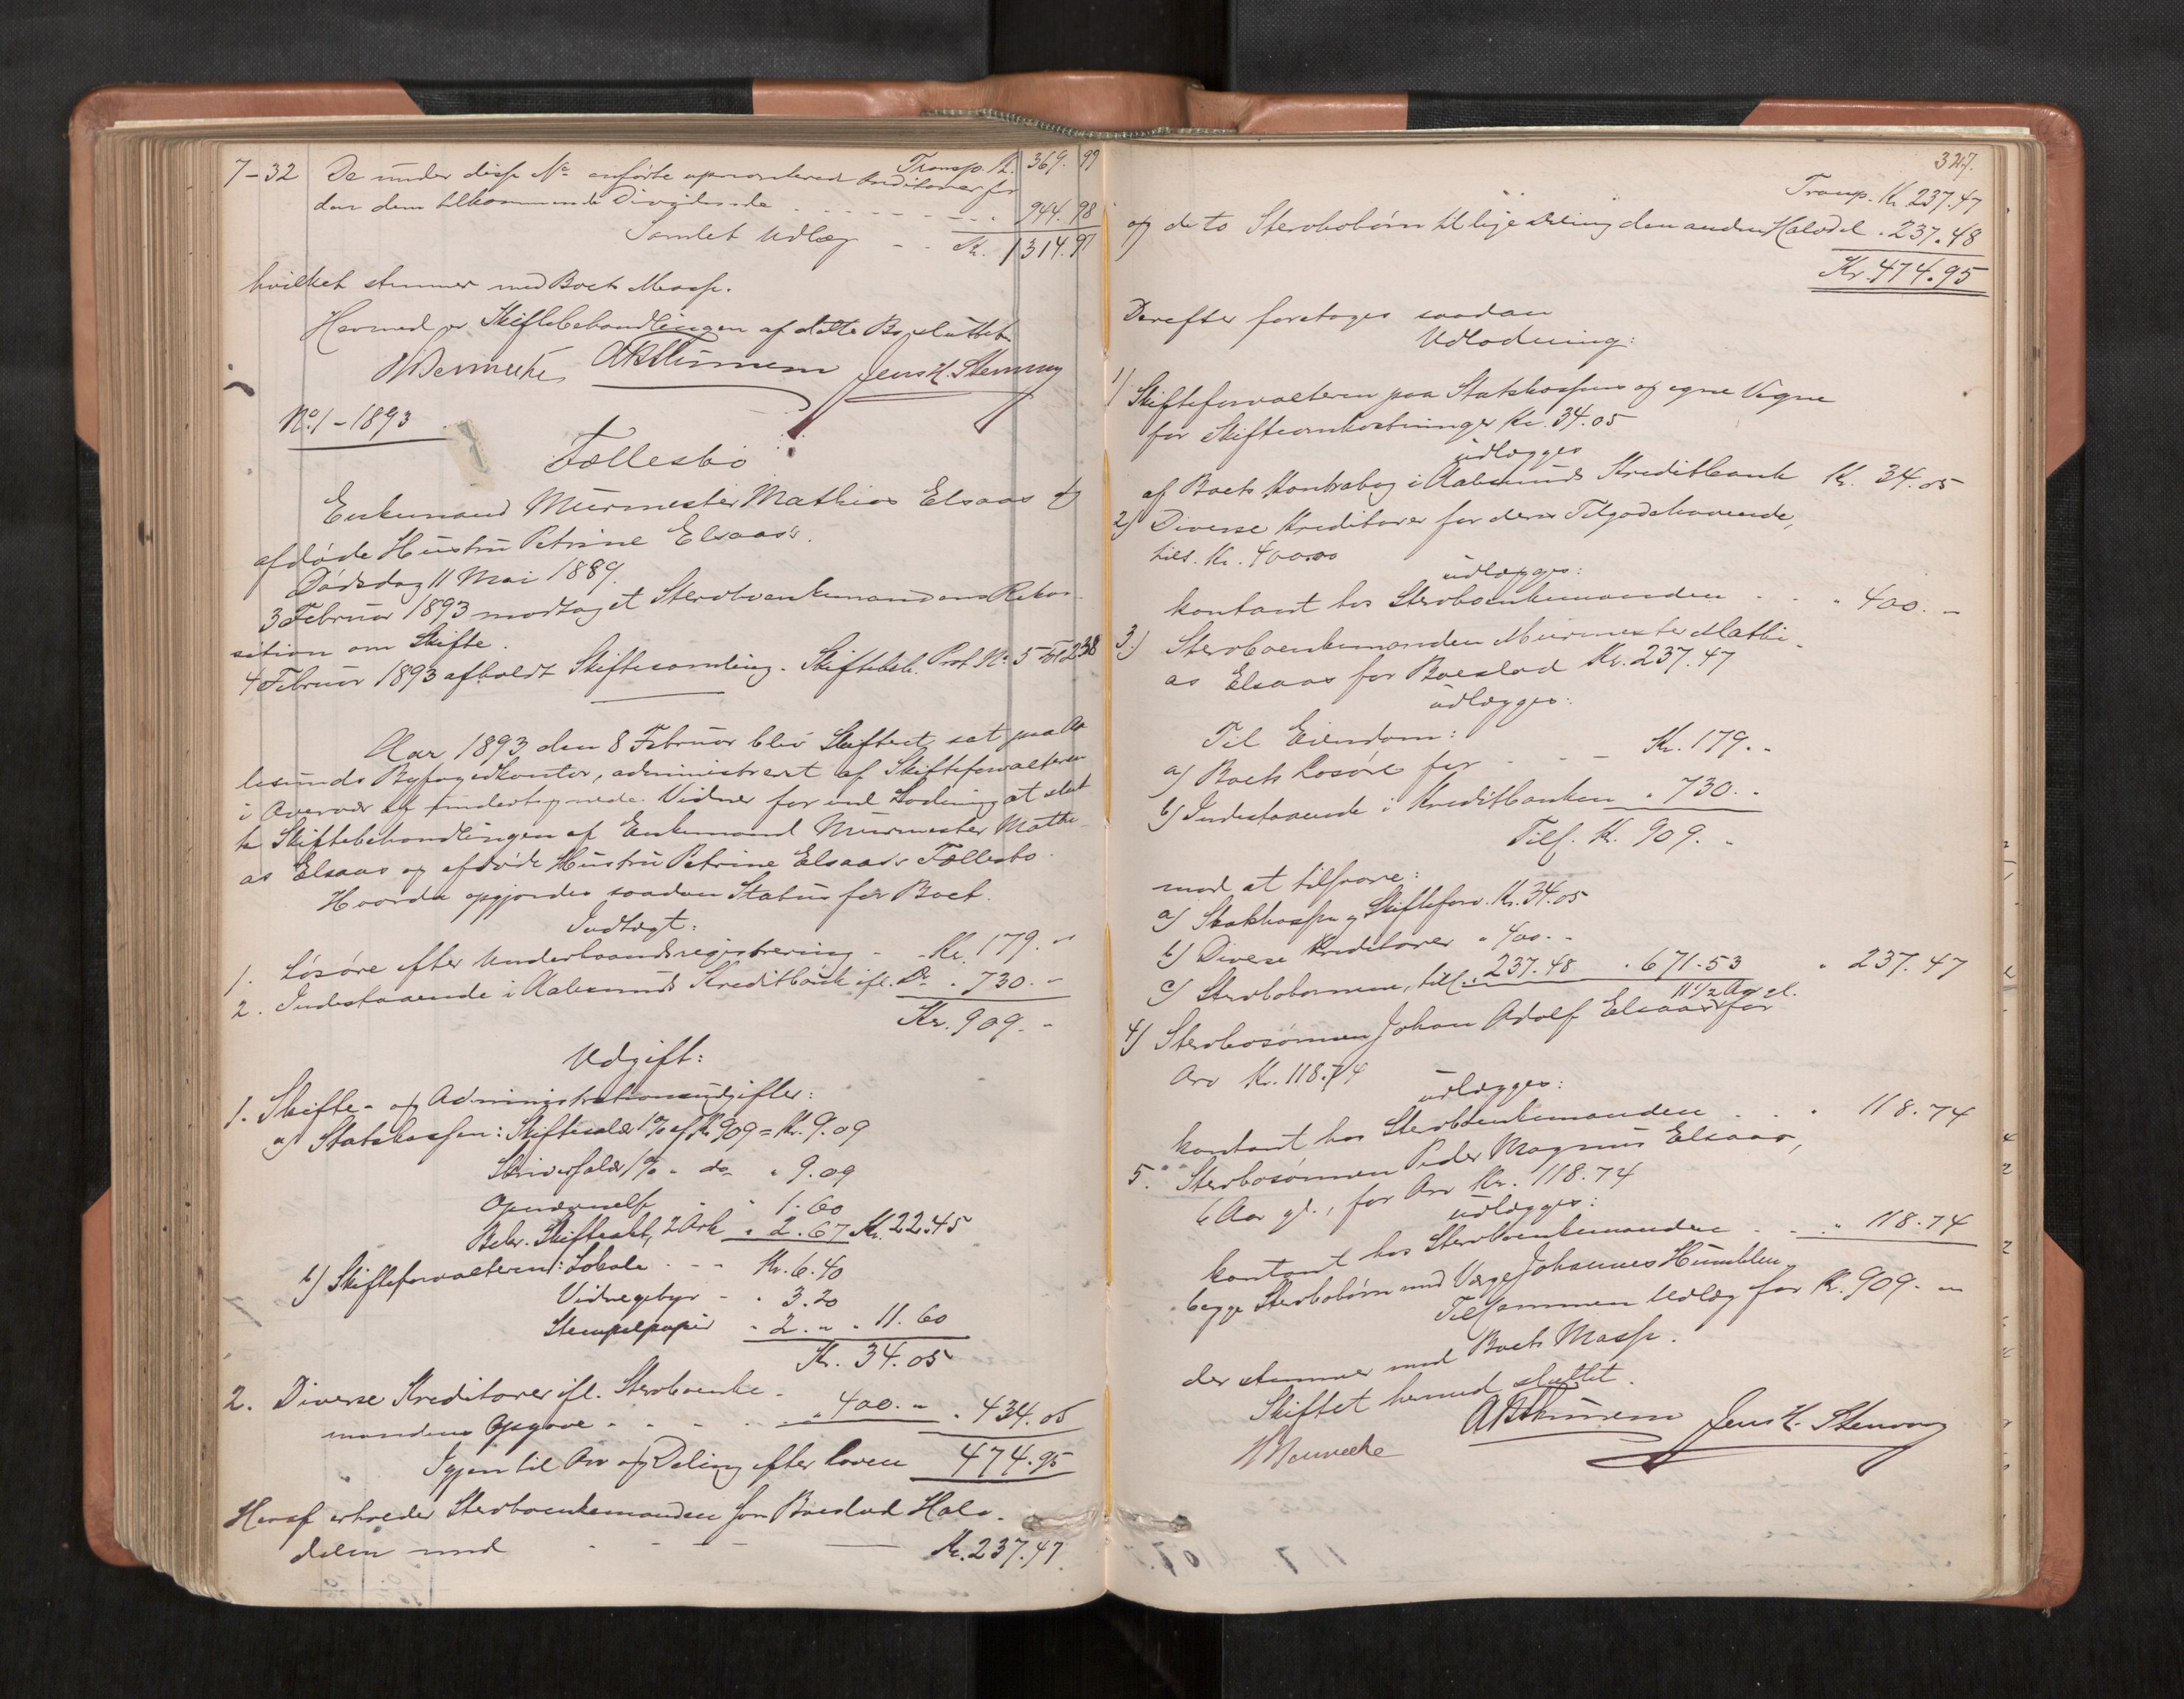 7-32 De under disse No anførte uprioriterede Kreditorer for
Transp. Kr. 369.99
den dem tilkommende Dividende 944.98
Samlet Udlæg Kr. 1314.97
hvilket stemmer med Boets Masse.
Hermed er Skiftebehandlingen af dette Bo sluttet.
Jens K. Stenvig
No. 1-1893
Fællesbo
Enkemand Murmester Mathias Elsaas og
afdøde Hustru Petrine Elsaas's.
Dødsdag 11 Mai 1889.
3 Februar 1893 modtaget Sterboenkemandens Rekvi
sition om Skifte.
4 Februar 1893 afholdt Skiftesamling. Skiftebeh. Prot. No. 5 Fol 238
Aar 1893 den 8 Februar blev Skifteret sat paa Aa
lesunds Byfogedkontor, administreret af Skifteforvalteren
i Overvær af undertegnede Vidner for ved Lodning at slut
te Skiftebehandlingen af Enkemand Murmester Mathi-
as Elsaas og afdøde Hustru Petrine Elsaas's Fællesbo.
Hvorda opgjordes saadan Status for Boet.
Indtægt:
1. Løsøre efter Underhaandsregistrering - - Kr. 179. "
2. Indestaaende i Aalesunds Kreditbank ifl. Do . 730. -
Kr. 909. -
Udgift:
1. Skifte- og Administrationsudgifter:
a) Statskassen: Skiftesalær 1% af Kr 909 = Kr. 9.09
Skriversalær 1% " do " 9.09
" 1.60
Bekr. Skifteakt, 2 Ark " 2.67 Kr. 22.45
b) Skifteforvalteren: Lokale - - Kr. 6.40
Vidnegebyr - " 3.20
Stempelpapir " 2. " " 11.60
Kr. 34.05
2. Diverse Kreditorer ifl. Sterboenke-
mandens Opgave - - - - " 400. " . 434.05
Igjen til Arv og Deling efter Loven 474.95
Heraf erholder Sterboenkemanden som Boeslod Halv-
delen med - - - - Kr. 237.47
327.
Transp. Kr. 237.47
og de to Sterbobørn til lige Deling den anden Halvdel . 237.48
Kr. 474.95
Derefter foretoges saadan
Udlodning:
1) Skifteforvalteren paa Statskassens og egne Vegne
for Skifteomkostninger Kr. 34.05
udlægges
af Boets Kontrabog i Aalesunds Kreditbank Kr. 34.05
2) Diverse Kreditorer for deres Tilgodehavende,
tils. Kr. 400.00
udlægges:
kontant hos Sterboenkemanden - - " 400. -
3.) Sterboenkemanden Murmester Mathi-
as Elsaas for Boeslod Kr. 237.47
udlægges:
Til Eiendom:
a) Boets Løsøre for - - - Kr. 179. -
b) Indestaaende i Kreditbanken . 730. -
Tils. Kr. 909. -
mod at tilsvare:
a) Statskassen og Skifteforv. Kr. 34.05
b) Diverse Kreditorer " 400. -
c) Sterbobørnene, tils. . 237.48 . 671.53 " 237.47
4) Sterbosønnen Johan Adolf Elsaas, 11 1/2 Aar gl. for
Arv Kr. 118.74
udlægges:
kontant hos Sterboenkemanden . . . 118.74
5. Sterbosønnen Peder Magnus Elsaas,
6 Aar gl., for Arv Kr. 118.74
udlægges:
kontant hos Sterboenkemanden - - " 118.74
begge Sterbobørn med Værge Johannes Humblen.
Tilsammen Udlæg for Kr. 909. -
der stemmer med Boets Masse.
Skiftet hermed sluttet.
Jens K. Stenvig